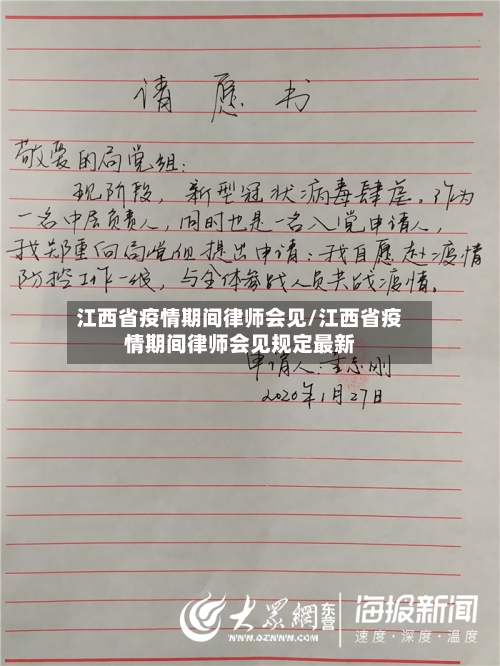 请愿书
敬爱的局党组:
现阶段,新型冠状病毒肆虐,作为
一名中层负责人,同时也是一名入党申请人,
我郑重向局党组提出申请:我自愿赴疫情
防控工作一线,与全体参战人员共战疫情。
江西省疫情期间律师会见/江西省疫
情期间律师会见规定最新
申请人:志刚
2020年1月27日
大众网 东营 海报新闻
www.dzwww.com 速度·深度·温度